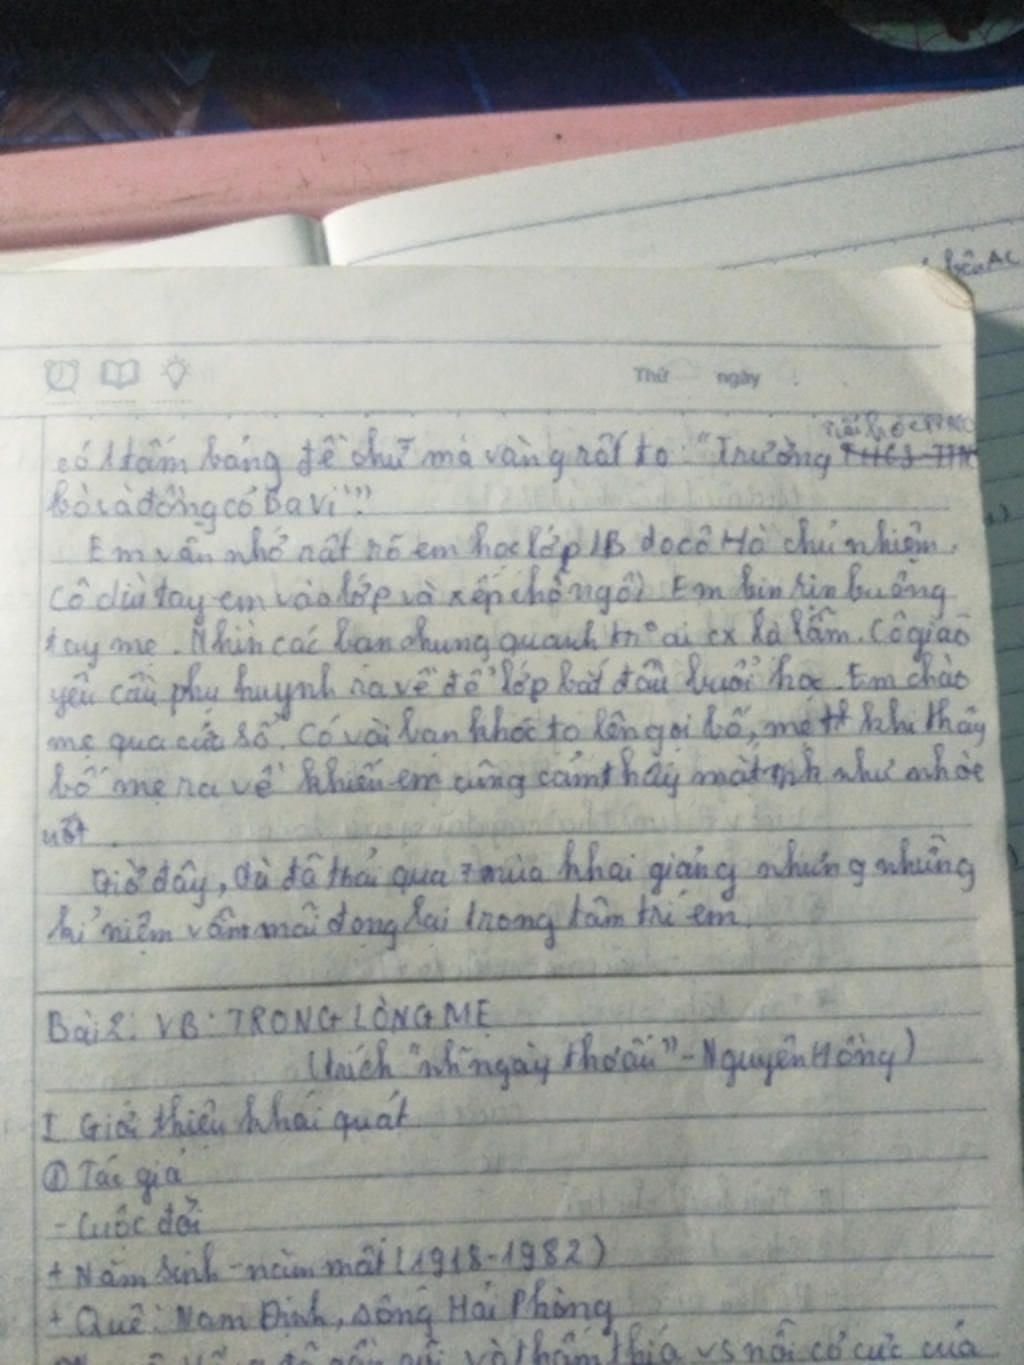 bên AC
Thứ ngày
có 1 tấm bảng đề chữ mà vàng rất to "Trường THCS
bò và đồng cỏ Ba Vì"
Em vẫn nhớ rất rõ em học lớp 1B do cô Hà chủ nhiệm.
Cô dìu tay em vào lớp và xếp chỗ ngồi. Em bịn rịn buông
tay mẹ. Nhìn các bạn chung quanh trº ai cx lạ lẫm. Cô giáo
yêu cầu phụ huynh ra về để lớp bắt đầu buổi học. Em chào
mẹ qua cửa sổ. Có vài bạn khóc to lên gọi bố, mẹ khi thấy
bố mẹ ra về khiến em cũng cảm thấy mắt mk như nhòe
ướt.
Giờ đây, dù đã trải qua 7 mùa khai giảng nhưng những
kỉ niệm vẫn mãi đọng lại trong tâm trí em.
Bài 2: VB: TRONG LÒNG MẸ
(trích "nh~ ngày thơ ấu" - Nguyên Hồng)
I Giới thiệu khái quát
① Tác giả
- Cuộc đời
+ Năm sinh - năm mất (1918-1982)
+ Quê: Nam Định, sống Hải Phòng
gần gũi và thấm thía vs nỗi cơ cực của